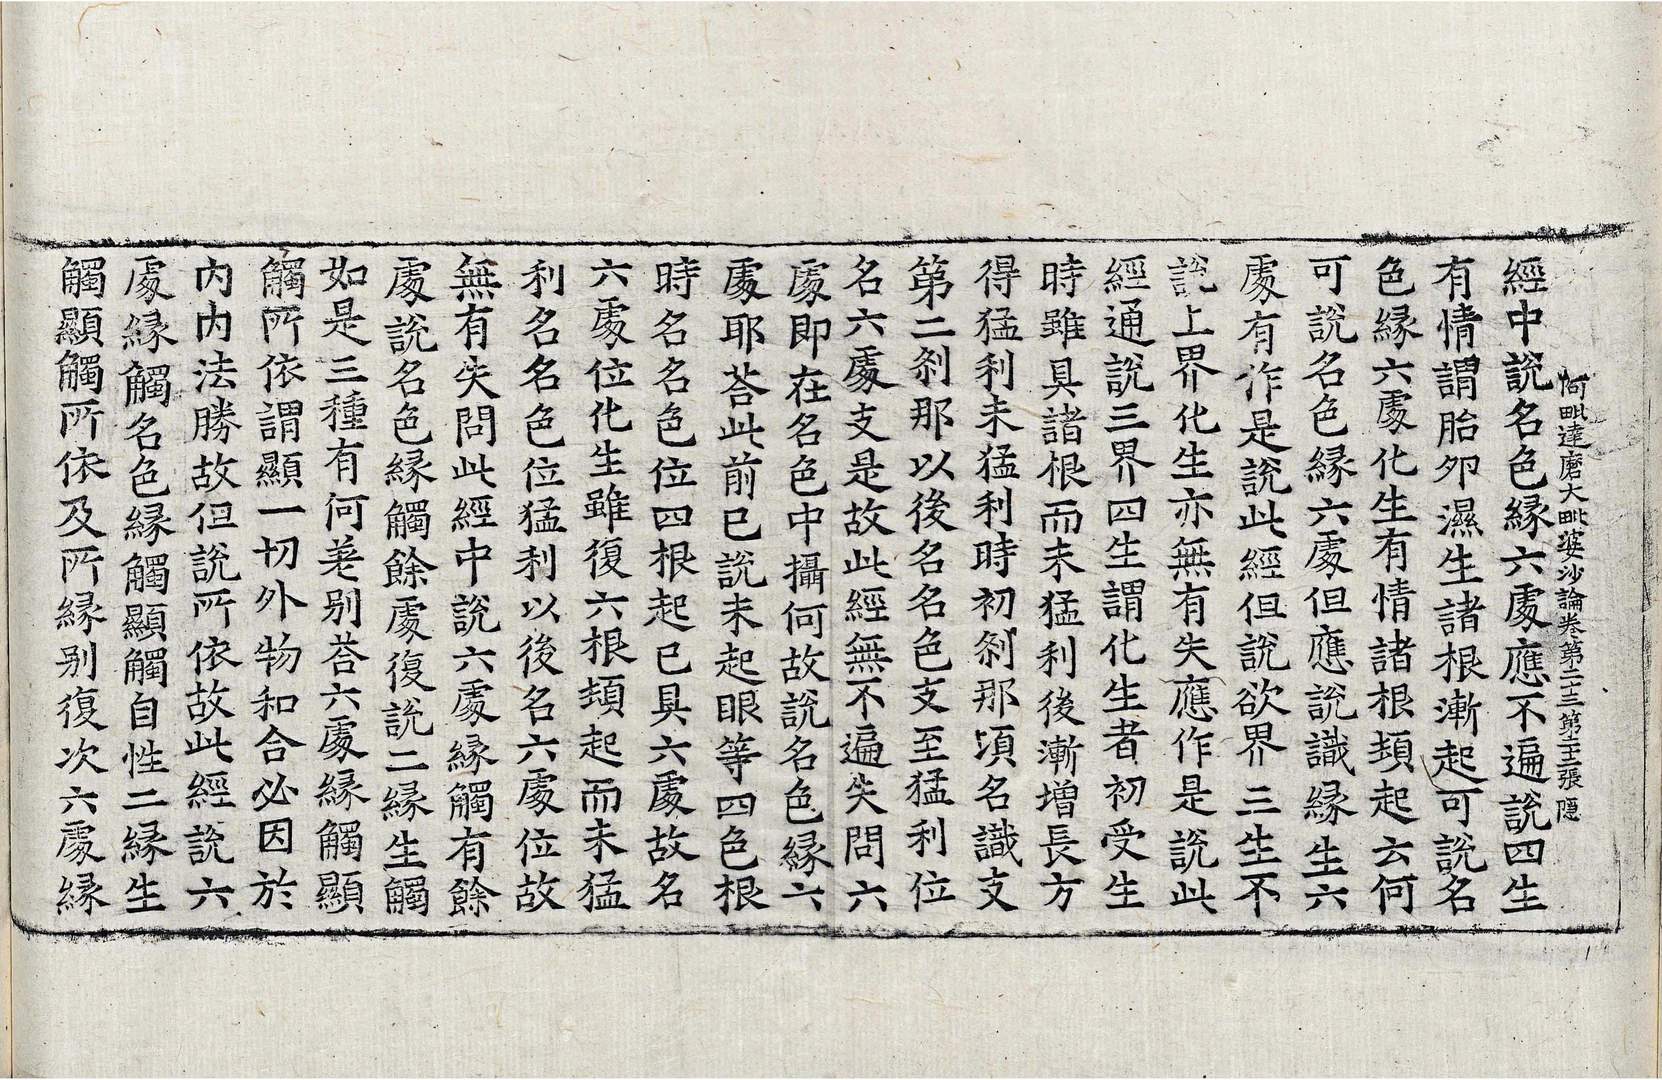 阿毗達磨大毗婆沙論卷第二十三第二十二張隱
經中說名色緣六處應不遍說四生
有情謂胎卵濕生諸根漸起可說名
色緣六處化生有情諸根頓起云何
可說名色緣六處但應說識緣生六
處有作是說此經但說欲界三生不
說上界化生亦無有失應作是說此
經通說三界四生謂化生者初受生
時雖具諸根而未猛利後漸增長方
得猛利未猛利時初剎那頃名識支
第二剎那以後名名色支至猛利位
名六處支是故此經無不遍失問六
處即在名色中攝何故說名色緣六
處耶荅此前已說未起眼等四色根
時名名色位四根起已具六處故名
六處位化生雖復六根頓起而未猛
利名名色位猛利以後名六處位故
無有失問此經中說六處緣觸有餘
處說名色緣觸餘處復說二緣生觸
如是三種有何差別荅六處緣觸顯
觸所依謂顯一切外物和合必因於
內內法勝故但說所依故此經說六
處緣觸名色緣觸顯觸自性二緣生
觸顯觸所依及所緣別復次六處緣